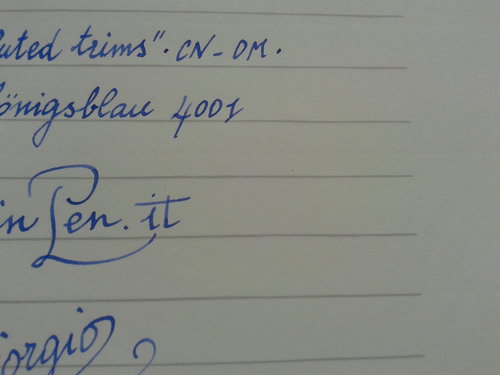 uted trims". CN-OM.
önigsblau 4001
in Pen.it
iorgio